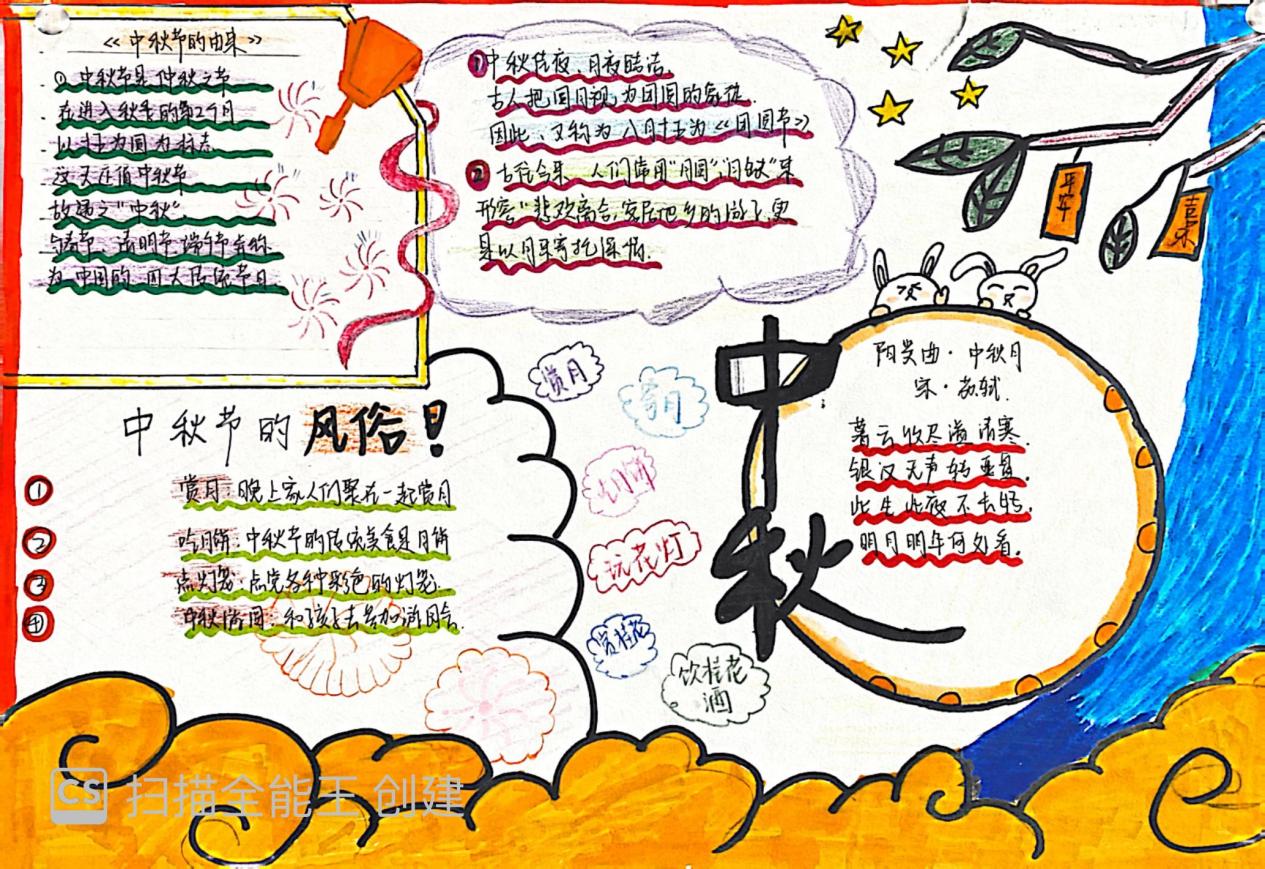 《中秋节的由来》
①中秋节是仲秋之节
在进入秋季的第2个月
以十五为圆为标志
这天正值中秋节
故谓之"中秋".
与春节、清明节、端午节并称
为中国的四大传统节日
①中秋佳夜、月夜皓洁.
古人把圆月视为团圆的象征.
因此、又称为八月十五为《团圆节》
②古往今来 人们常用"月圆","月缺"来
形容"悲欢离合,客居他乡的游子,更
是以月来寄托深情.
平安
吉乐
中秋
阳关曲·中秋月
宋·苏轼.
暮云收尽溢清寒.
银汉无声转玉盘.
此生此夜不长好.
明月明年何处看.
赏月
月
吃月饼
玩花灯
赏桂花
饮桂花
酒
中秋节的风俗!
① 赏月:晚上家人们聚在一起赏月
② 吃月饼:中秋节的传统美食是月饼
③ 点灯笼:点亮各种彩色的灯笼.
④ 中秋游园:和孩子去参加游园会.
CS 扫描全能王 创建